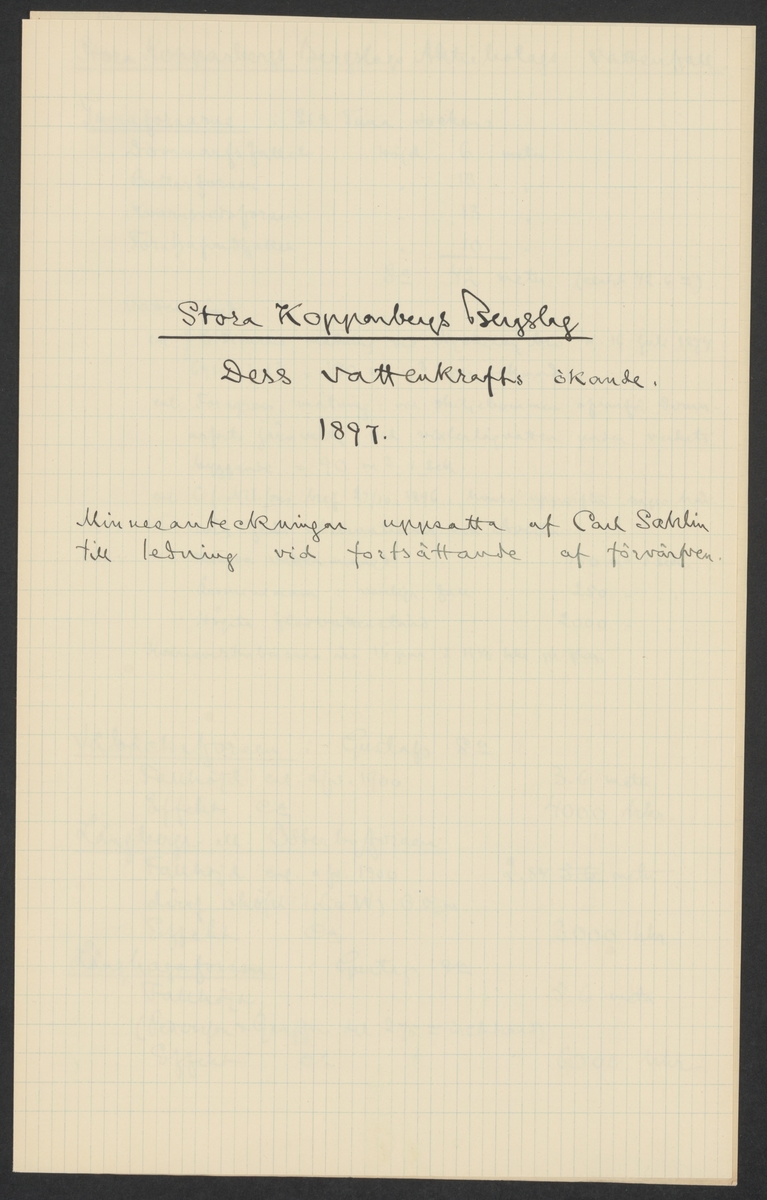 Stora Kopparbergs Bergslag
Dess vattenkrafts ökande.
1897.
Minnesanteckningar uppsatta af Carl Sahlin
till ledning vid fortsättande af förvärfven.